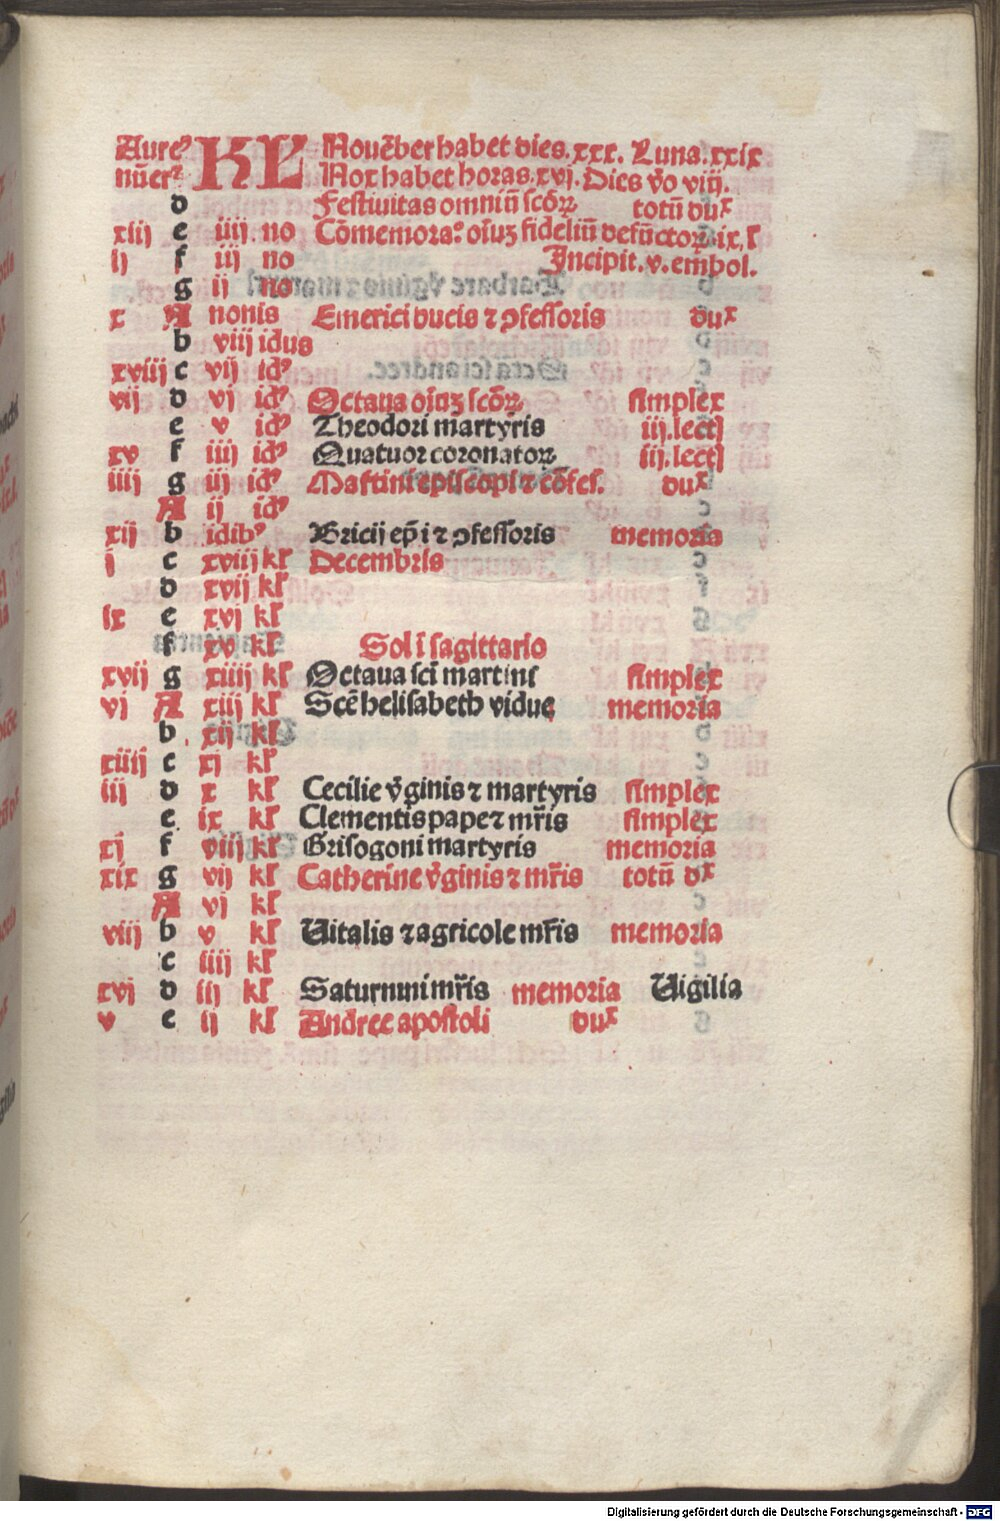 Aureꝰ KL Nouẽber habet dies.xxx. Luna.xxix
nũerꝰ Nox habet horas.xvj. Dies ỽo viij.
d Festiuitas omniũ scõꝝ totũ duͯ
xiij e iiij no Cõmemora.º oĩuʒ fideliũ defũctoꝝ ix.l
ij f iij no Incipit.v.embol.
g ij no
x A nonis Emerici ducis ⁊ ꝯfessoris duͯ
b viij idus
xviij c vij idꝰ
vij d vj idꝰ Octaua oĩuʒ scõꝝ simplex
e v idꝰ Theodori martyris iij.lectj
xv f iiij idꝰ Quatuor coronatoꝝ iij.lectj
iiij g iij idꝰ Martini episcopi ⁊ cõfes. duͯ
A ij idꝰ
xij b idibꝰ Bricij ep̃i ⁊ ꝯfessoris memoria
j c xviij kl Decembris
d xvij kl
ix e xvj kl
f xv kl Sol ĩ sagittario
xvij g xiiij kl Octaua sci martini simplex
vj A xiij kl Scẽ helisabeth vidue memoria
b xij kl
xiiij c xj kl
iij d x kl Cecilie v̾ginis ⁊ martyris simplex
e ix kl Clementis pape ⁊ mr̃is simplex
xj f viij kl Grisogoni martyris memoria
xix g vij kl Catherine v̾ginis ⁊ mr̃is totũ dͯ
A vj kl
viij b v kl Uitalis ⁊ agricole mr̃is memoria
c iiij kl
xvj d iij kl Saturnini mr̃is memoria Uigilia
v e ij kl Andree apostoli duͯ
Digitalisierung gefördert durch die Deutsche Forschungsgemeinschaft - DFG